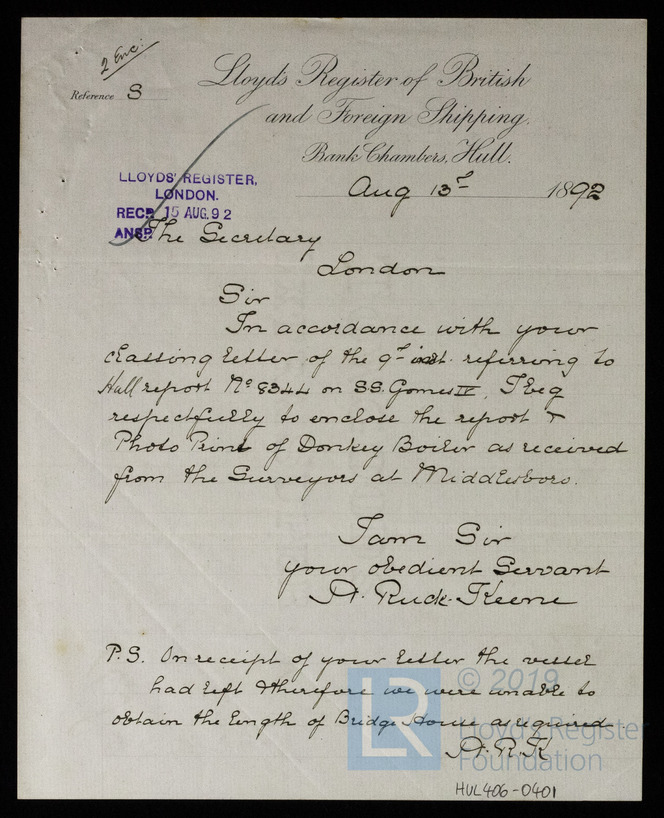 2 Enc.
Reference S
Lloyd's Register of British
and Foreign Shipping.
Bank Chambers, Hull.
Aug 13th 1892
LLOYDS' REGISTER,
LONDON.
RECD 15 AUG. 92
ANSD
The Secretary
London
Sir
In accordance with your
classing letter of the 9th inst. referring to
Hull report No 8344 on SS. Gomes IV, I beg
respectfully to enclose the report &
Photo Print of Donkey Boiler as received
from the Surveyors at Middlesboro.
I am Sir
your obedient Servant
A. Ruck-Keene
P.S. On receipt of your letter the vessel
had left therefore we were unable to
obtain the length of Bridge House as required
A.R.K
LR
© 2019
Lloyd's Register
Foundation
HUL406-0401